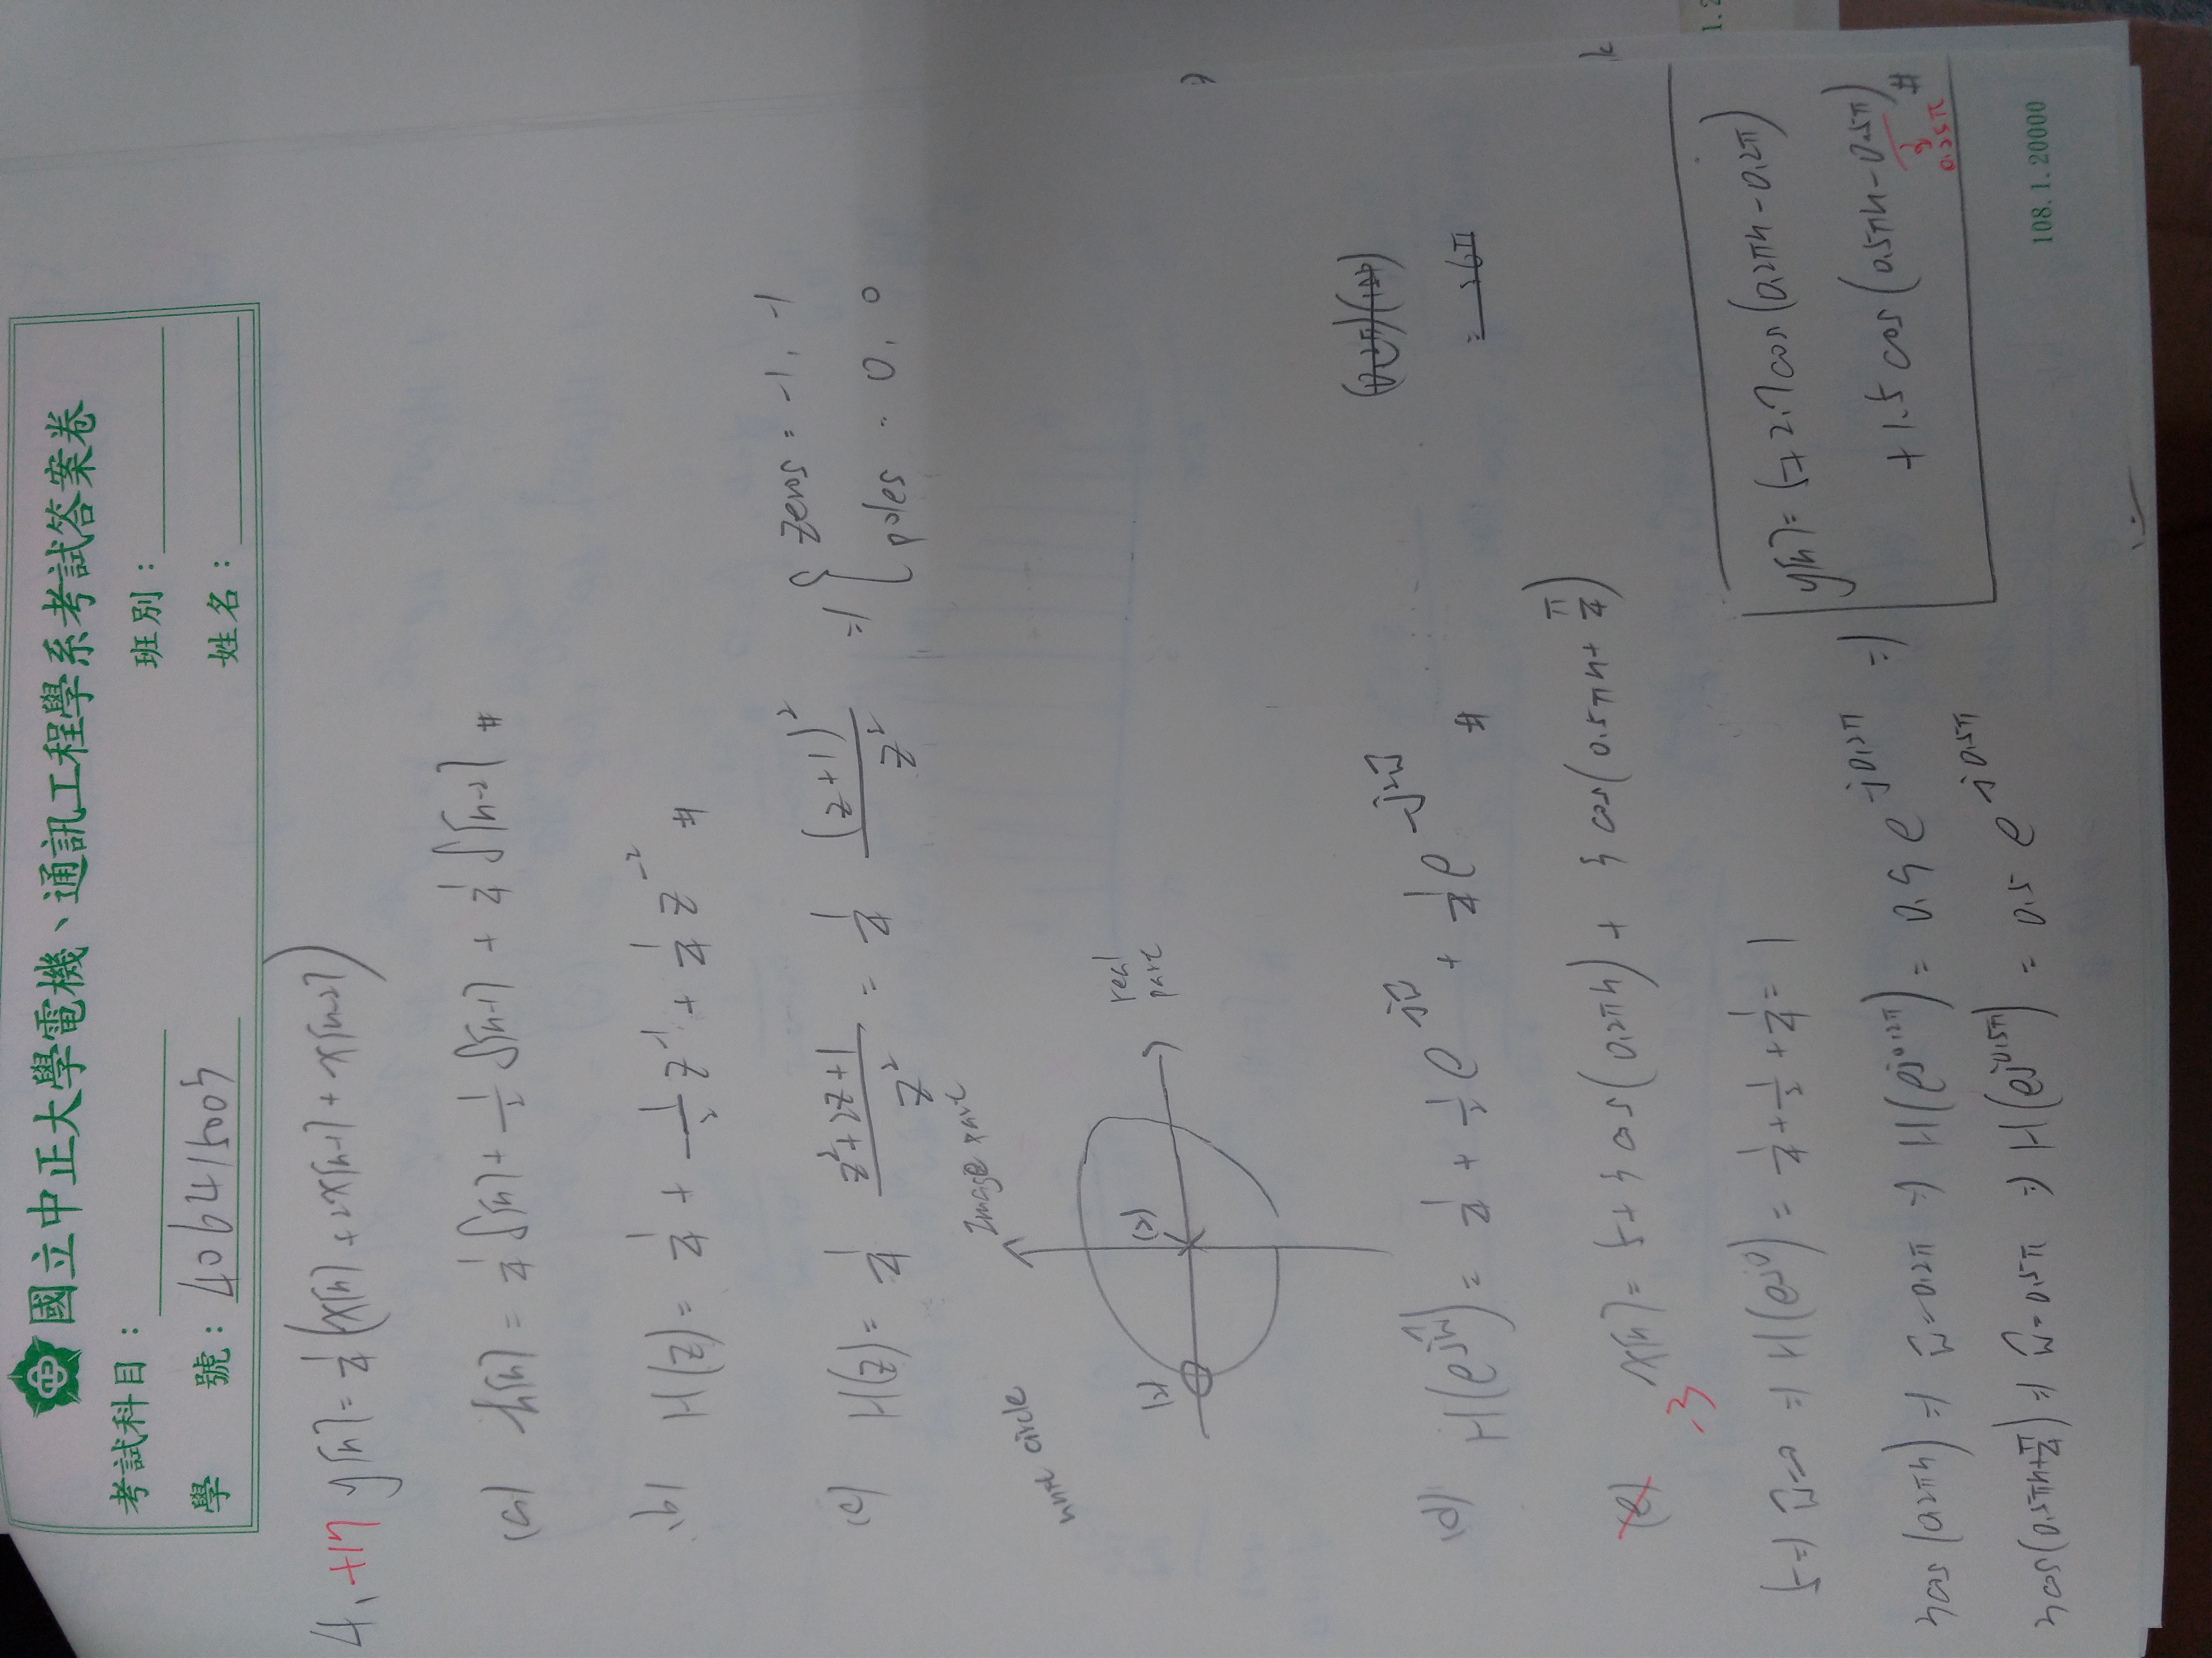 國立中正大學電機、通訊工程學系考試答案卷
考試科目：
班別：
學 號：406415003
姓名：
4. +17 y[n] = 1/4 (x[n] + 2x[n-1] + x[n-2])
(a) h[n] = 1/4 δ[n] + 1/2 δ[n-1] + 1/4 δ[n-2] #
(b) H(z) = 1/4 + 1/2 z^-1 + 1/4 z^-2 #
(c) H(z) = 1/4 (z^2+2z+1)/z^2 = 1/4 (z+1)^2/z^2 ⇒ { zeros = -1, -1
poles = 0, 0
Image part
unit circle
real part
(2)
(2)
(d) H(e^jω̂) = 1/4 + 1/2 e^jω̂ + 1/4 e^-j2ω̂ #
(e) x[n] = 5 + 3 cos(0.2πn) + 3 cos(0.5πn + π/4)
-3
5 ⇒ ω̂=0 ⇒ H(e^j0) = 1/4 + 1/2 + 1/4 = 1
3cos(0.2πn) ⇒ ω̂=0.2π ⇒ H(e^j0.2π) = 0.9 e^-j0.2π ⇒
3cos(0.5πn+π/4) ⇒ ω̂=0.5π ⇒ H(e^j0.5π) = 0.5 e^-j0.5π
y[n] = 5+2.7cos(0.2πn-0.2π)
+1.5 cos(0.5πn-0.5π) #
0.25π
108.1.20000